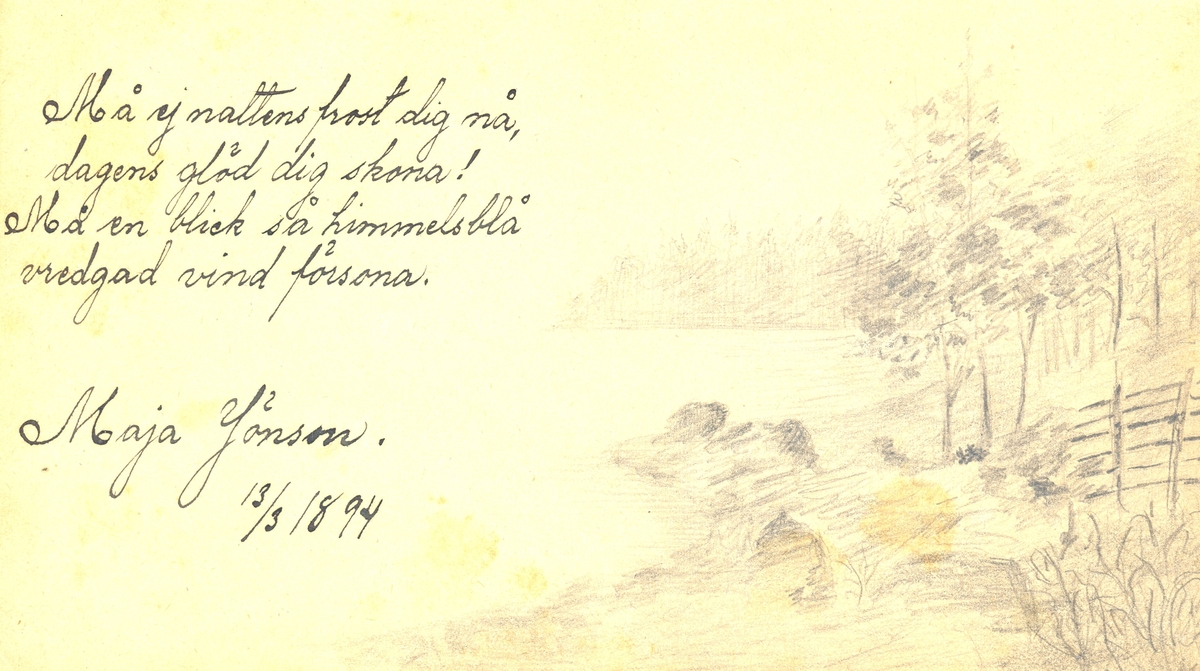 Må ej nattens frost dig nå,
dagens glöd dig skona!
Må en blick så himmelsblå
vredgad vind försona.
Maja Jönson.
13/3 1894